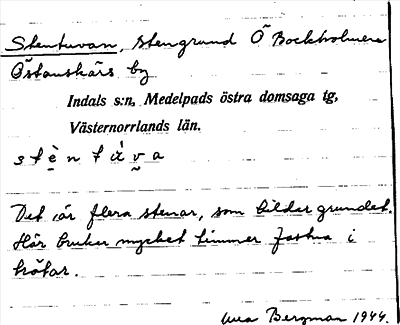 Stentuvan, stengrund Ö Bockholmen
Östanskärs by
Indals s:n, Medelpads östra domsaga tg,
Västernorrlands län.
stèntʉ̀va
Det är flera stenar, som bildar grundet.
Här bruker mycket timmer fastna i
bråtar.
Bergman 1944.